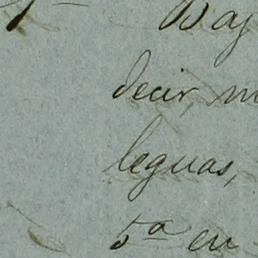 Baj
decir, m
leguas,
5ª en